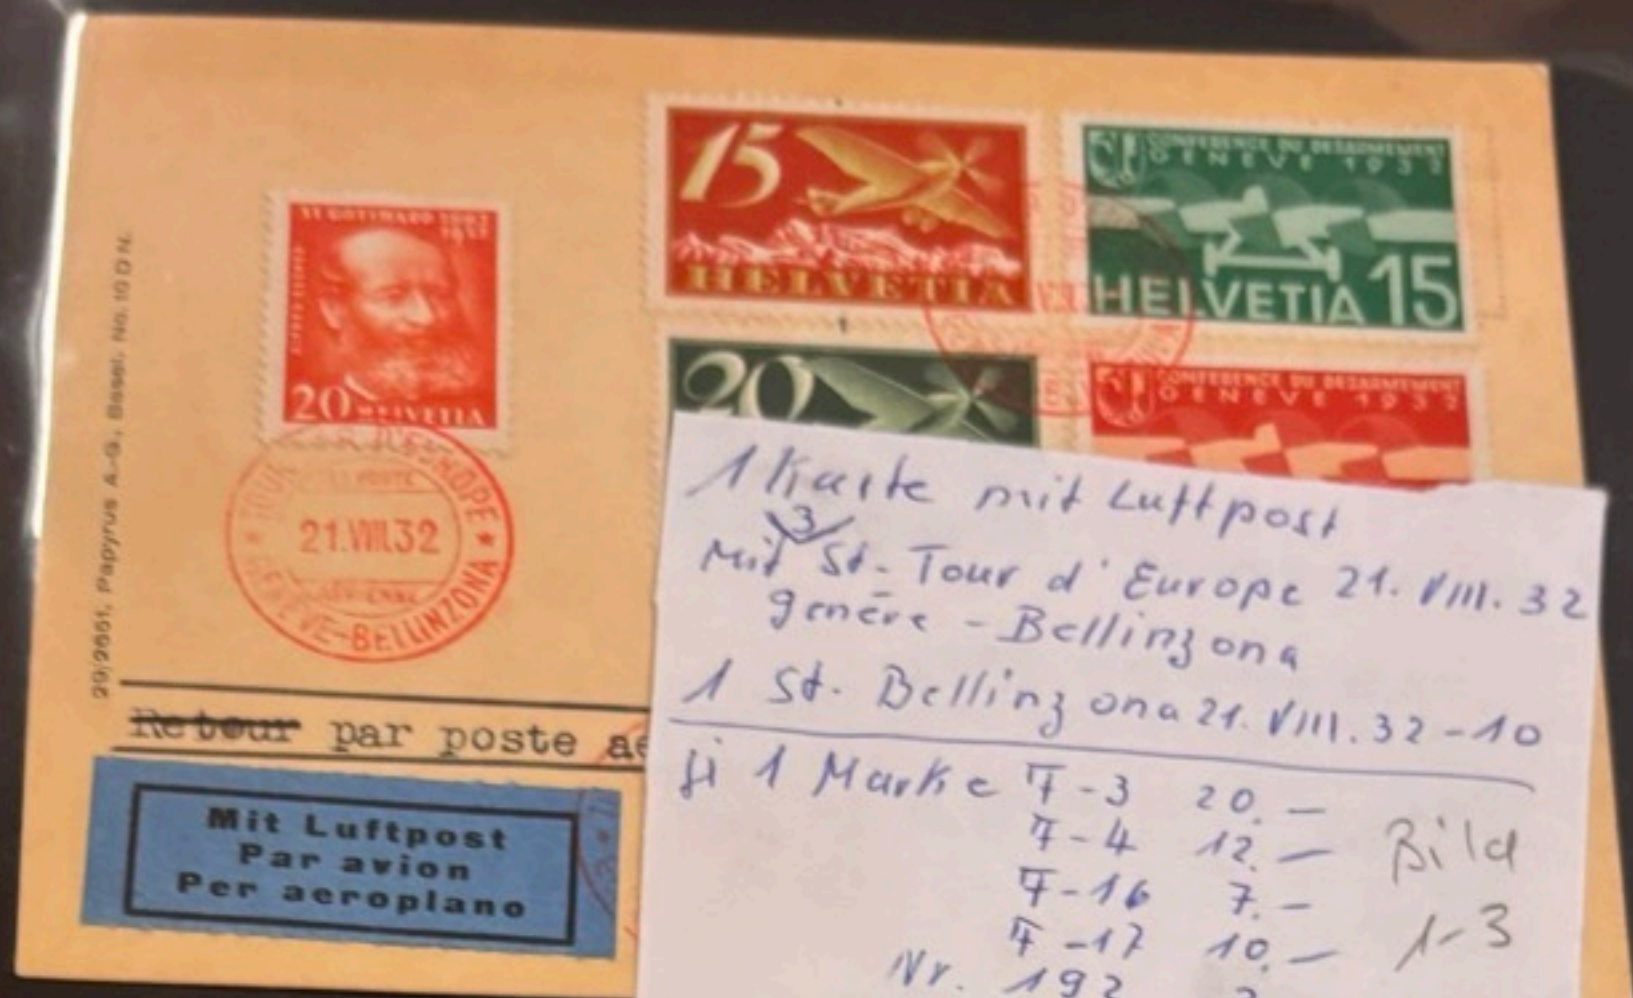 29/2551, Papyrus A.-G., Basel. No. 10 D N.
ST GOTTHARD 1882
1932
20 HELVETIA
15
HELVETIA
CONFERENCE DU DESARMEMENT
GENEVE 1932
HELVETIA 15
20
CONFERENCE DU DESARMEMENT
GENEVE 1932
TOUR D'EUROPE
21.VIII.32
GENEVE-BELLINZONA
Retour par poste aé
Mit Luftpost
Par avion
Per aeroplano
1 Karte mit Luftpost
3
Mit St- Tour d'Europe 21. VIII. 32
genève - Bellinzona
1 St. Bellinzona 21. VIII. 32 - 10
1 Marke F-3 20.-
F-4 12.-
F-16 7.-
F-17 10.-
Nr. 192
Bild
1-3